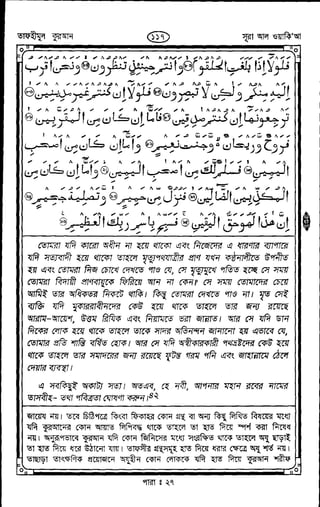 তাফহীমুল কুরআন
১১৭
সূরা আল ওয়াকি'আ
فَلَوْلَا إِذَا بَلَغَتِ الْحُلْقُومَ ﴿٨٣﴾ وَأَنْتُمْ حِينَئِذٍ تَنْظُرُونَ ﴿٨٤﴾ وَنَحْنُ أَقْرَبُ
إِلَيْهِ مِنْكُمْ وَلَكِنْ لَا تُبْصِرُونَ ﴿٨٥﴾ فَلَوْلَا إِنْ كُنْتُمْ غَيْرَ مَدِينِينَ ﴿٨٦﴾
تَرْجِعُونَهَا إِنْ كُنْتُمْ صَادِقِينَ ﴿٨٧﴾ فَأَمَّا إِنْ كَانَ مِنَ الْمُقَرَّبِينَ ﴿٨٨﴾
فَرَوْحٌ وَرَيْحَانٌ وَجَنَّتُ نَعِيمٍ ﴿٨٩﴾ وَأَمَّا إِنْ كَانَ مِنْ أَصْحَابِ
الْيَمِينِ ﴿٩٠﴾ فَسَلَامٌ لَكَ مِنْ أَصْحَابِ الْيَمِينِ ﴿٩١﴾ وَأَمَّا إِنْ كَانَ مِنَ
الْمُكَذِّبِينَ الضَّالِّينَ ﴿٩٢﴾ فَنُزُلٌ مِنْ حَمِيمٍ ﴿٩٣﴾ وَتَصْلِيَةُ جَحِيمٍ ﴿٩٤﴾
إِنَّ هَذَا لَهُوَ حَقُّ الْيَقِينِ ﴿٩٥﴾ فَسَبِّحْ بِاسْمِ رَبِّكَ الْعَظِيمِ ﴿٩٦﴾
তোমরা যদি কারো অধীন না হয়ে থাকো এবং নিজেদের এ ধারণার ব্যাপারে
যদি সত্যবাদী হয়ে থাকো তাহলে মৃত্যুপথযাত্রীর প্রাণ যখন কণ্ঠনালীতে উপনীত
হয় এবং তোমরা নিজ চোখে দেখতে পাও যে, সে মৃত্যুমুখে পতিত হচ্ছে সে সময়
তোমরা বিদায়ী প্রাণবায়ুকে ফিরিয়ে আন না কেন? সে সময় তোমাদের চেয়ে
আমিই তার অধিকতর নিকটে থাকি। কিন্তু তোমরা দেখতে পাও না। মৃত সেই
ব্যক্তি যদি মুকাররাবীনদের কেউ হয়ে থাকে তাহলে তার জন্য রয়েছে
আরাম-আয়েশ, উত্তম রিযিক এবং নিয়ামতে ভরা জান্নাত। আর সে যদি ডান
দিকের লোক হয়ে থাকে তাহলে তাকে সাদর অভিনন্দন জানানো হয় এভাবে যে,
তোমার প্রতি শান্তি বর্ষিত হোক। আর সে যদি অস্বীকারকারী পথভ্রষ্টদের কেউ হয়ে
থাকে তাহলে তার সমাদরের জন্য রয়েছে ফুটন্ত গরম পানি এবং জাহান্নামে ঠেলে
দেয়ার ব্যবস্থা।
এ সবকিছুই অকাট্য সত্য। অতএব, হে নবী, আপনার মহান রবের নামের
তাসবীহ- তথা পবিত্রতা ঘোষণা করুন।
জায়েয নয়।
যদি কুরআনের কোন আয়াত লিখিত থাকে তাহলে তা হাত দিয়ে স্পর্শ করা নিষেধ